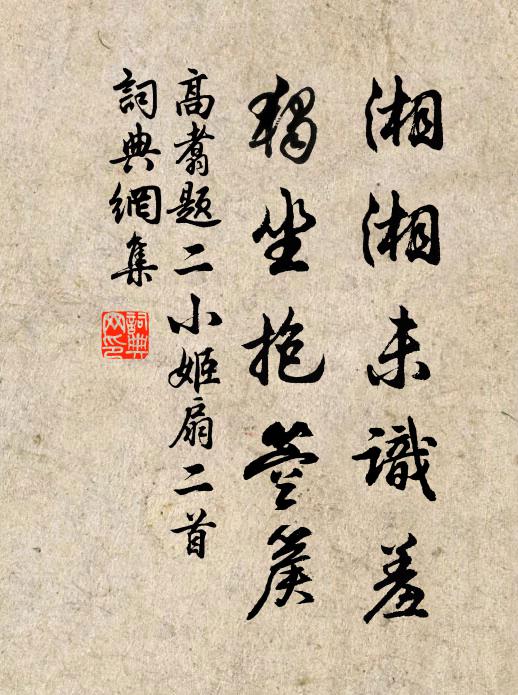 湘湘未識羞
獨坐抱箜篌
高翥題二小姬扇二首
詞典網集
詞典
網印